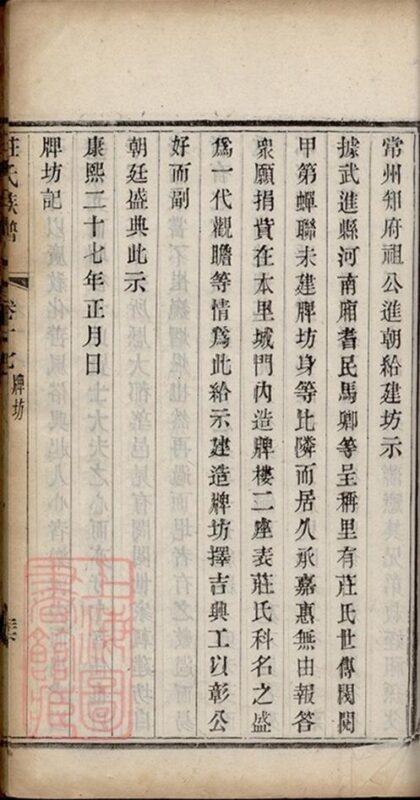 常州知府祖公進朝給建坊示
據武進縣河南廂耆民馬卿等呈稱里有莊氏世傳閥閱
甲第蟬聯未建牌坊身等比隣而居久承嘉惠無由報答
衆願捐貲在本里城門內造牌樓二座表莊氏科名之盛
爲一代觀瞻等情爲此給示建造牌坊擇吉興工以彰公
好而副
朝廷盛典此示
康熙三十七年正月日
牌坊記
莊氏族譜
卷十七
牌坊
上海圖書館藏